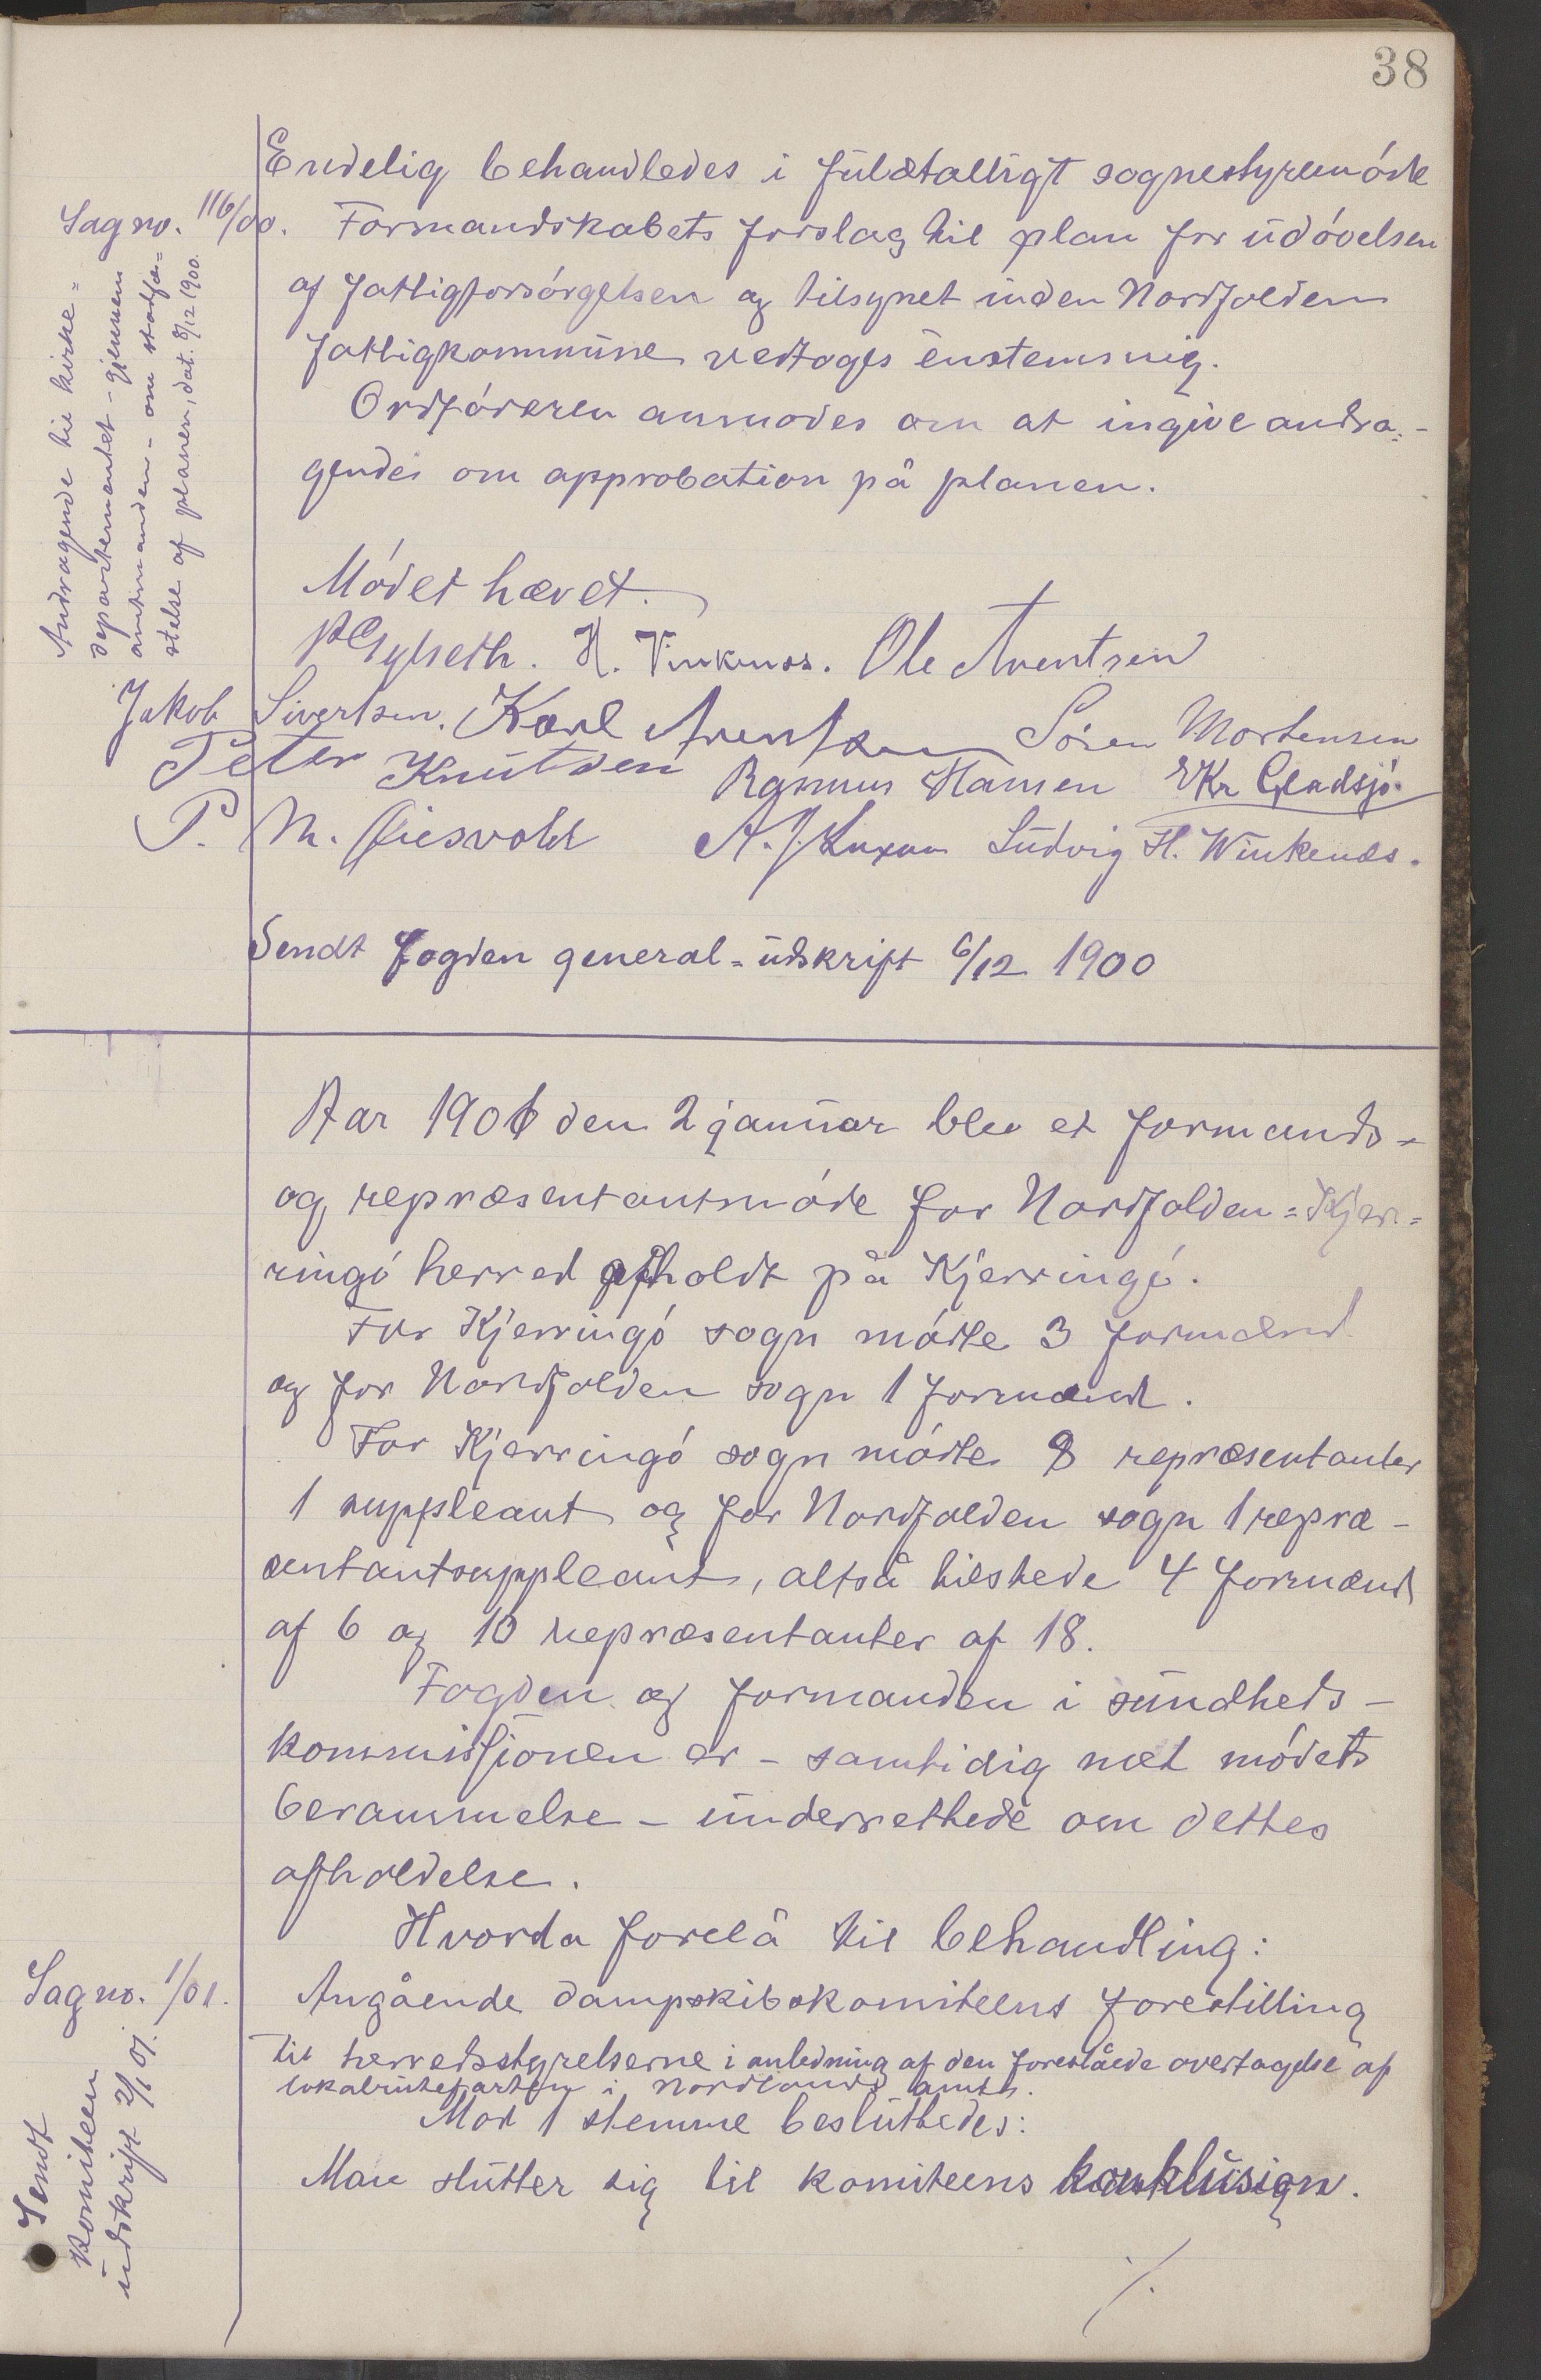 38
Endelig behandledes i fuldtalligt sognestyremöde
Sag no. 116/00.
Formandskabets forslag til plan for udövelsen
af fattigforsörgelsen og tilsynet inden Nordfolden
fattigkommune vedtoges enstemmig.
Ordföreren anmodes om at ingive andra-
gendes om approbation på planen.
Andragende til kirke-
departementet - gjennem
amtmanden - om stadfæ-
stelse af planen, dat. 8/12 1900.
Mödet hævet.
H. Vinkenes. Ole Arentsen
Jakob Sivertsen. Karl Arentsen Sören Mortensen
Peter Knutsen Rasmus Hansen E Kr Gladsjö.
P. M. Ludvig H. Winkenes.
Sendt fogden general-udskrift 6/12 1900
Aar 1901 den 2 januar blev et formands-
og repræsentantmöde for Nordfolden-Kjer-
ringö herred afholdt på Kjerringö.
For Kjerringö sogn mötte 3 formænd
og for Nordfolden sogn 1 formænd.
For Kjerringö sogn mötte 8 repræsentanter
1 suppleant og for Nordfolden sogn 1 repræ-
sentantsuppleant, altså tilstede 4 formænd
af 6 og 10 repræsentanter af 18.
Fogden og formanden i sundheds-
kommissjonen er - samtidig met mödets
berammelse - underrettede om dettes
afholdelse.
Hvorda forelå til behandling:
Sag no. 1/01.
Angående dampskibskomiteens forestilling
til herredsstyrelserne i anledning af den foreslåede overtagelse af
lokalrutefarten i Nordlands amt.
Mod 1 stemme besluttedes:
Man slutter sig til komiteens konklusion.
Sendt
komiteen
udskrift 2/1 01.
./.